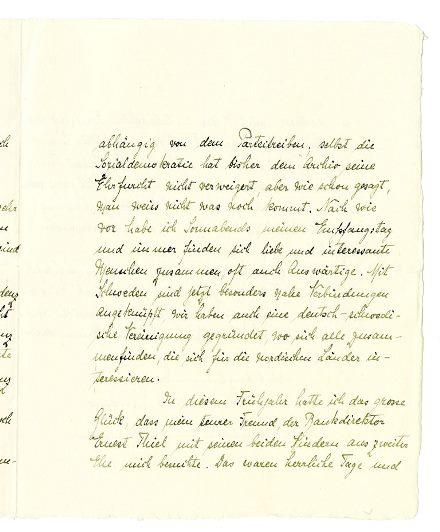 abhängig von dem Parteitreiben, selbst die
Sozialdemokratie hat bisher dem Archiv seine
Ehrfurcht nicht verweigert, aber wie schon gesagt,
man weiss nicht was noch kommt. Nach wie
vor habe ich Sonnabends meinen Empfangstag
und immer finden sich liebe und interessante
Menschen zusammen oft auch Auswärtige. Mit
Schweden sind jetzt besonders nahe Verbindungen
angeknüpft wir haben auch eine deutsch-schwedi-
sche Vereinigung gegründet wo sich alle zusam-
menfinden, die sich für die nordischen Länder in-
teressieren.
In diesem Frühjahr hatte ich das grosse
Glück, dass mein teurer Freund der Bankdirektor
Ernest Thiel mit seinen beiden Kindern aus zweiter
Ehe mich besuchte. Das waren herrliche Tage und